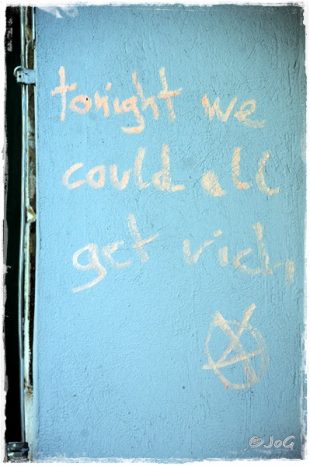 tonight we
could all
get rich,
©JoG